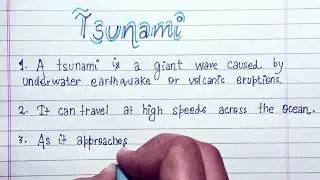 Tsunami
1. A tsunami is a giant wave caused by
underwater earthquake or volcanic eruptions.
2. It can travel at high speeds across the ocean.
3. As it approaches